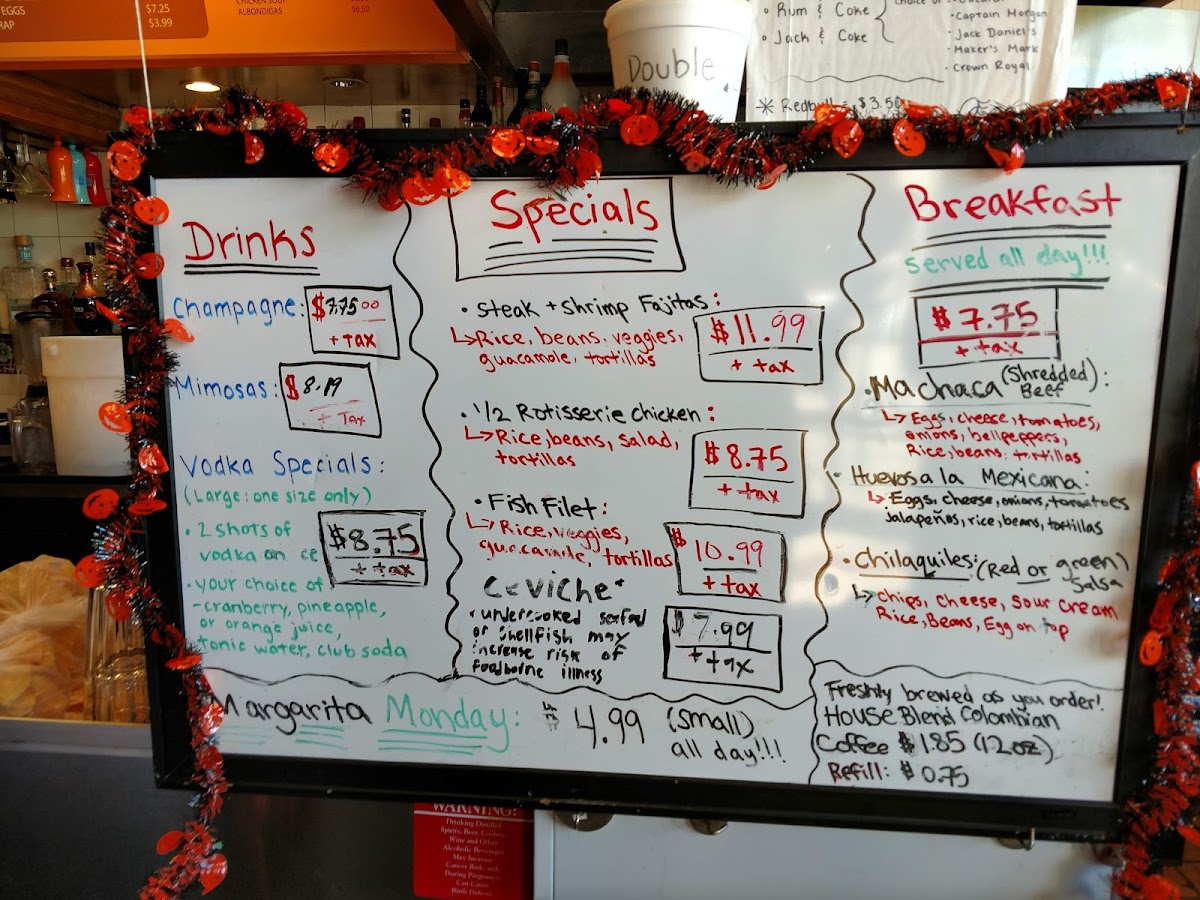 EGGS $7.25
RAP $3.99
CHICKEN SOUP
ALBONDIGAS $6.50
Double
• Rum & Coke
• Jack & Coke
• Captain Morgan
• Jack Daniel's
• Maker's Mark
• Crown Royal
Redbull = $3.50
Drinks
Champagne: $7.75
+ TAX
Mimosas: $8.19
+ TAX
Vodka Specials:
(Large: one size only)
• 2 shots of
vodka on
$8.75
+ tax
• your choice of
- cranberry, pineapple,
or orange juice,
tonic water, club soda
Specials
• Steak + Shrimp Fajitas:
Rice, beans, veggies,
guacamole, tortillas
$11.99
+ tax
• 1/2 Rotisserie Chicken:
Rice, beans, salad,
tortillas
$8.75
+ tax
• Fish Filet:
Rice, veggies,
guacamole, tortillas
$10.99
+ tax
Ceviche*
• undercooked seafod
or shellfish may
increase risk of
foodborne illness
$7.99
+ tax
Breakfast
served all day!!!
$7.75
+ tax
• Machaca (Shredded Beef):
Eggs, cheese, tomatoes,
onions, bellpeppers,
Rice, beans, tortillas
• Huevos a la Mexicana:
Eggs, cheese, onions, tomatoes
jalapeños, rice, beans, tortillas
• Chilaquiles: (Red or green)
Salsa
chips, cheese, sour cream
Rice, Beans, Egg on top
Margarita Monday: $4.99 (small)
all day!!!
Freshly brewed as you order!
House Blend Colombian
Coffee $1.85 (12oz)
Refill: $0.75
WARNING:
Drinking Distilled
Spirits, Beer, Coolers,
Wine and Other
Alcoholic Beverages
May Increase
Cancer Risk, and,
During Pregnancy,
Can Cause
Birth Defects